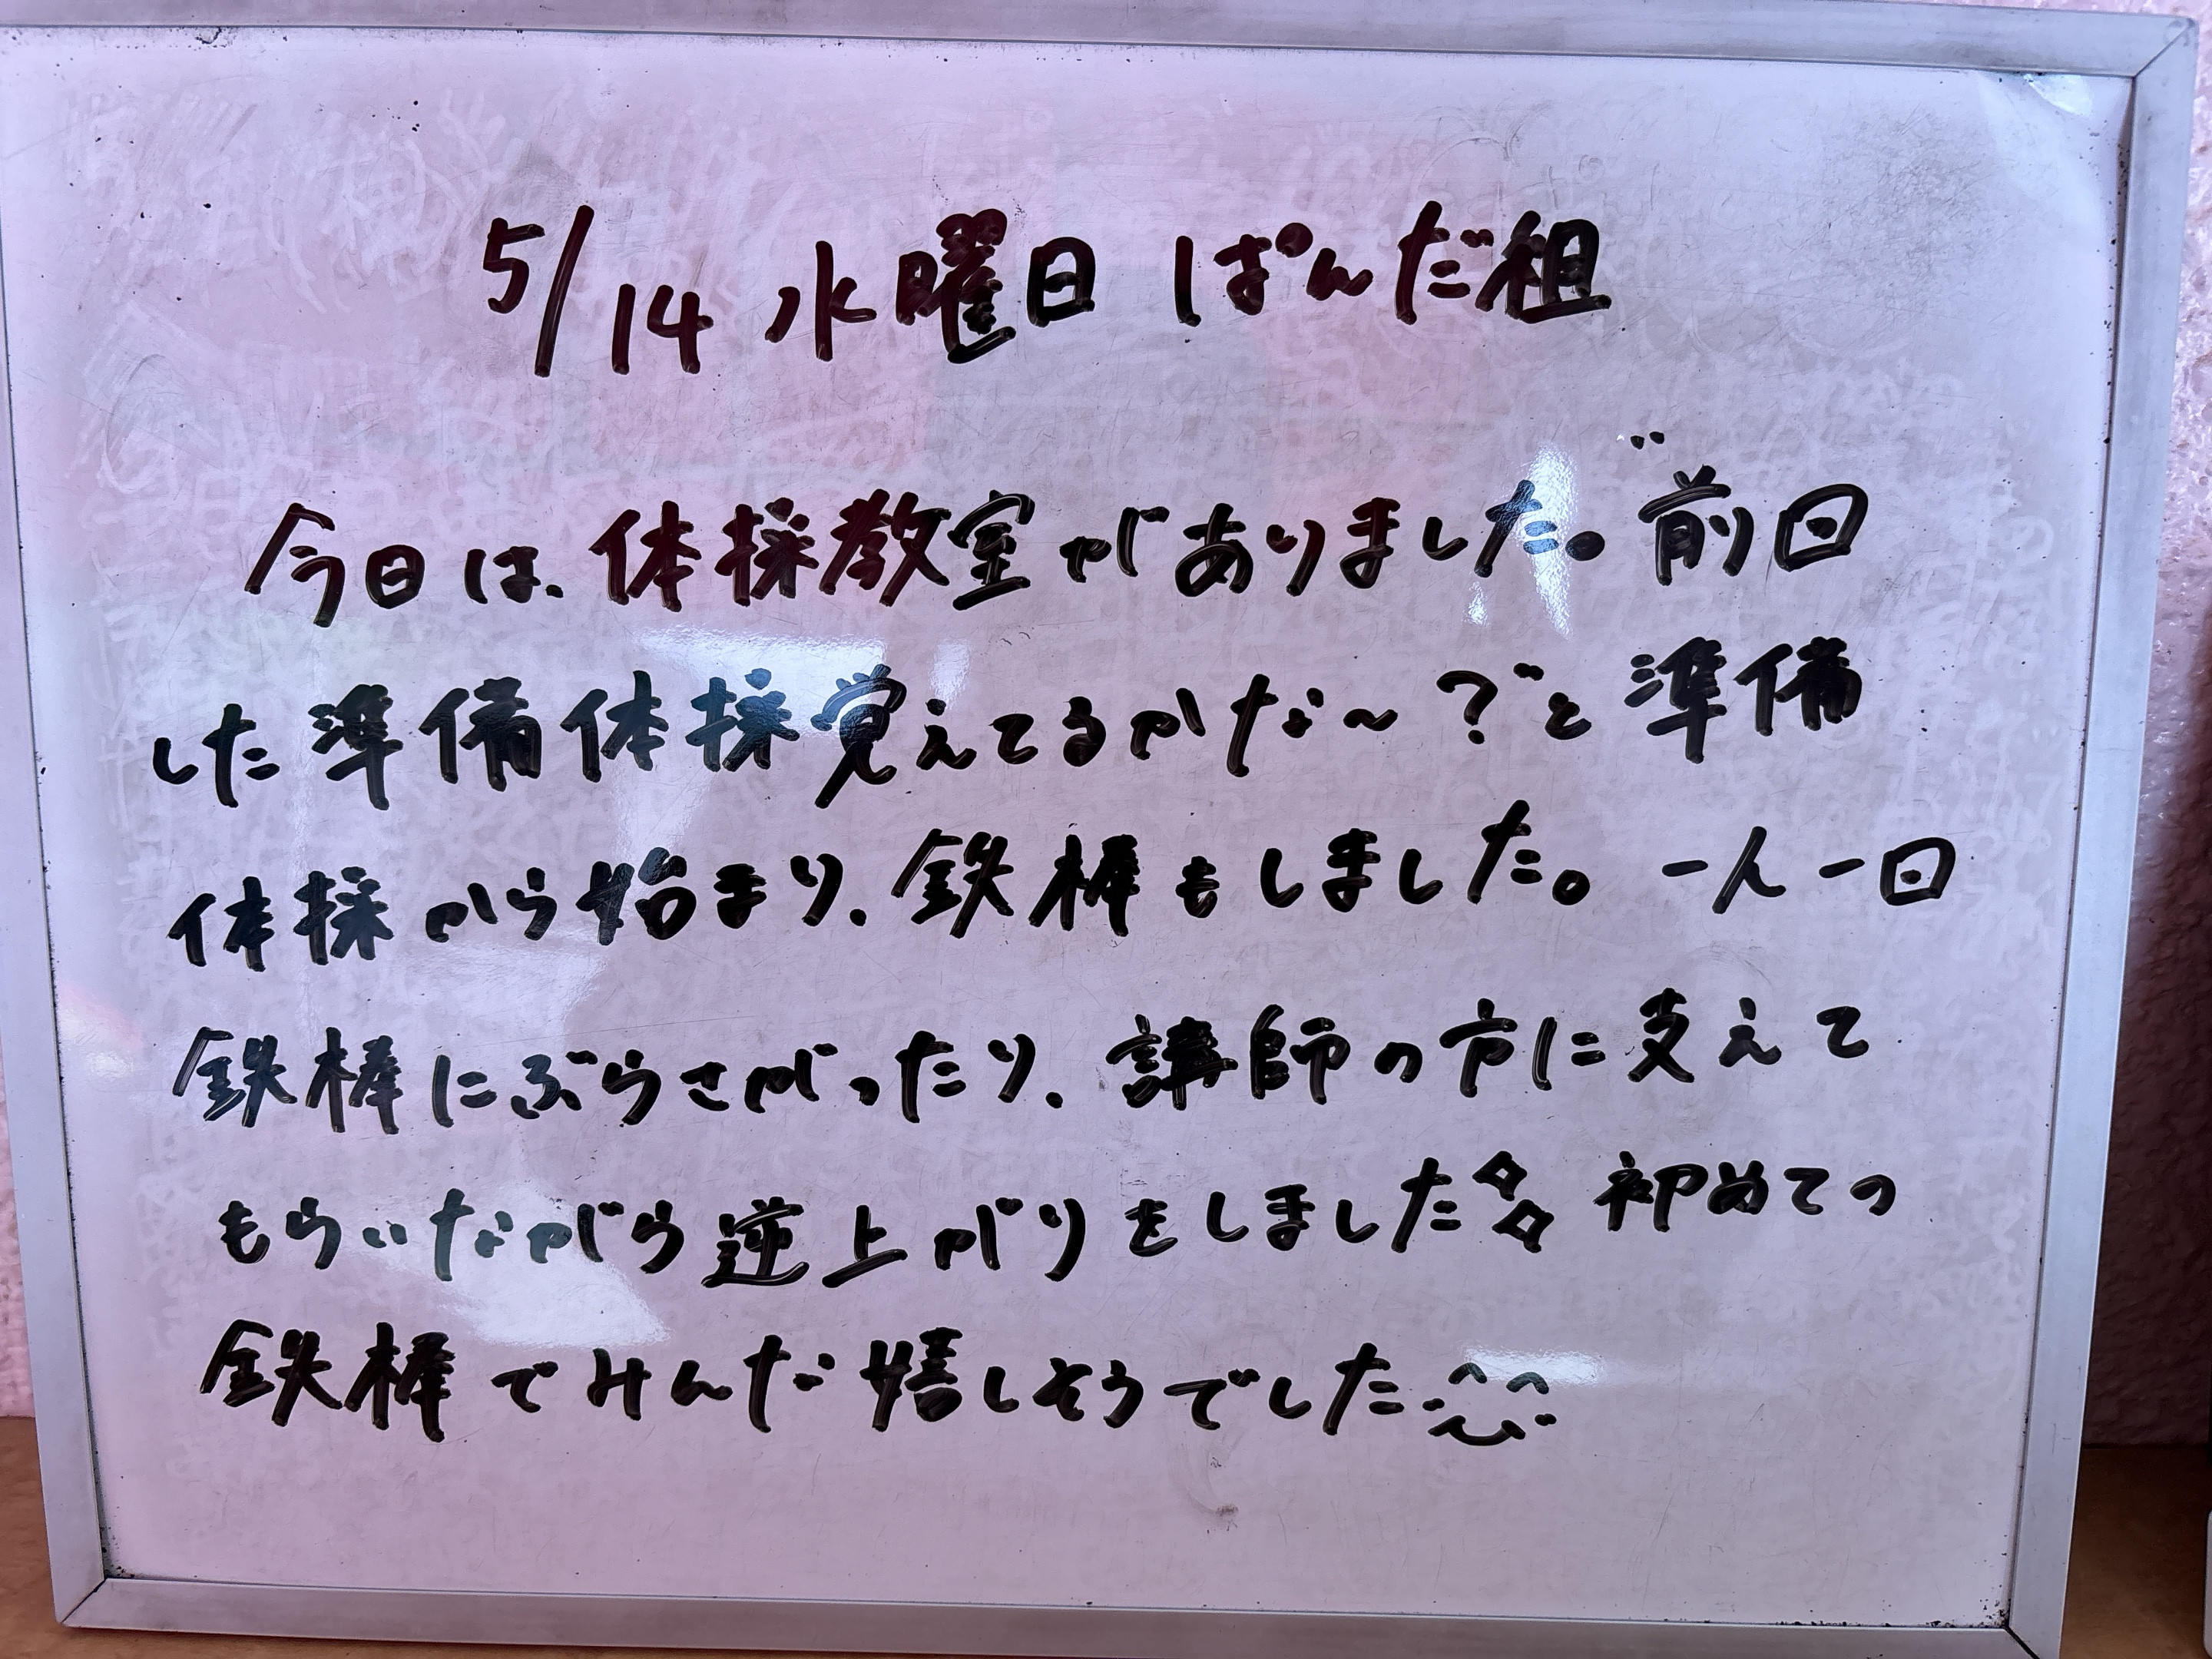 5/14 水曜日 ぱんだ組
今日は、体操教室がありました。"前回
した準備体操覚えてるかな～？"と準備
体操から始まり、鉄棒もしました。一人一回
鉄棒にぶらさがったり、講師の方に支えて
もらいながら逆上がりをしました✨ 初めての
鉄棒でみんな嬉しそうでした^^